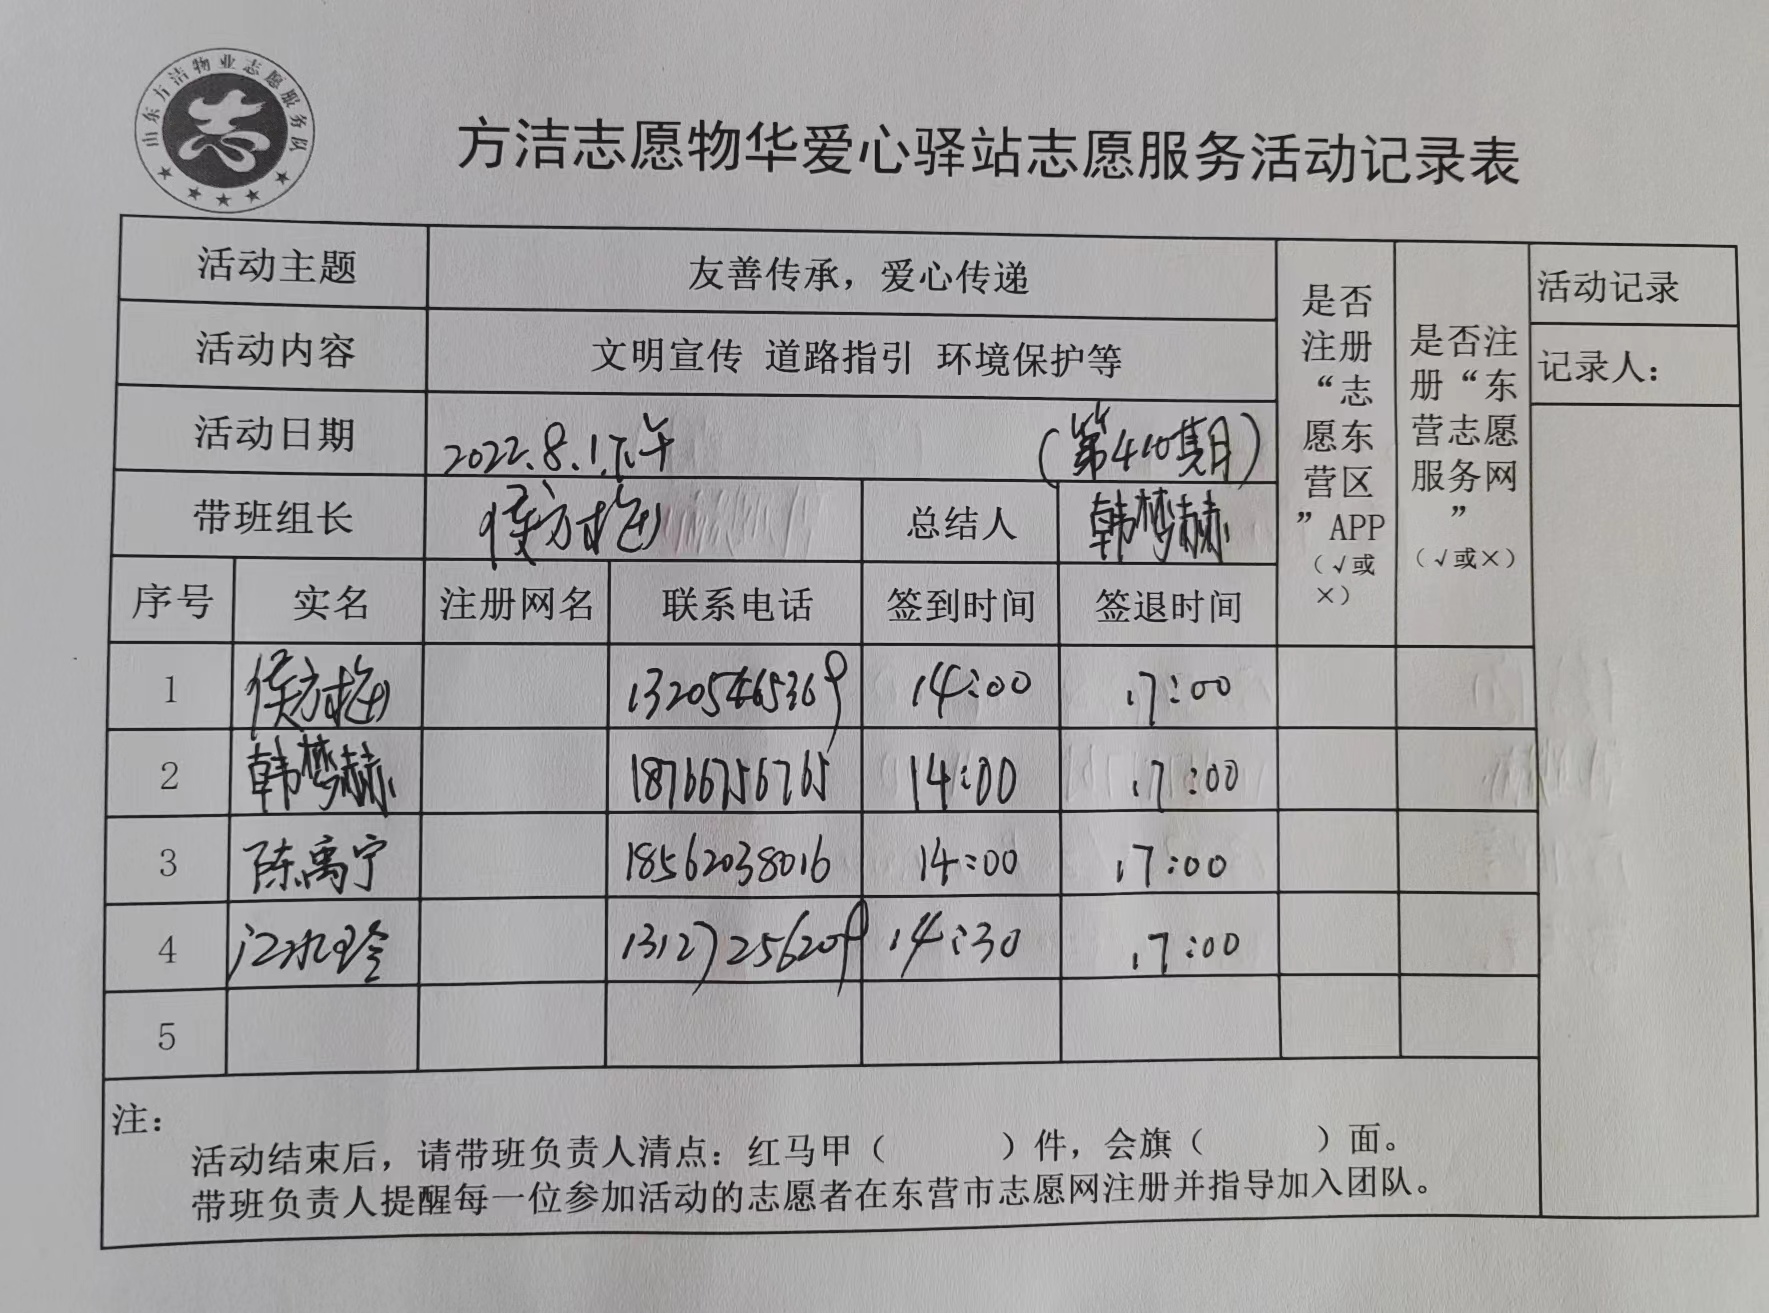 山东方洁物业志愿服务队
方洁志愿物华爱心驿站志愿服务活动记录表
活动主题 友善传承，爱心传递
活动内容 文明宣传 道路指引 环境保护等
活动日期 2022.8.1.下午 (第410期)
带班组长 侯方梅 总结人 韩梦赫
序号 实名 注册网名 联系电话 签到时间 签退时间
是否
注册
“志
愿东
营区
”APP
（√或
×）
是否注
册“东
营志愿
服务网
”
（√或×）
活动记录
记录人：
1 侯方梅 13205465369 14:00 17:00
2 韩梦赫 18766756765 14:00 17:00
3 陈禹宁 18562038016 14:00 17:00
4 江水玲 13127256209 14:30 17:00
5
注：
活动结束后，请带班负责人清点：红马甲（ ）件，会旗（ ）面。
带班负责人提醒每一位参加活动的志愿者在东营市志愿网注册并指导加入团队。